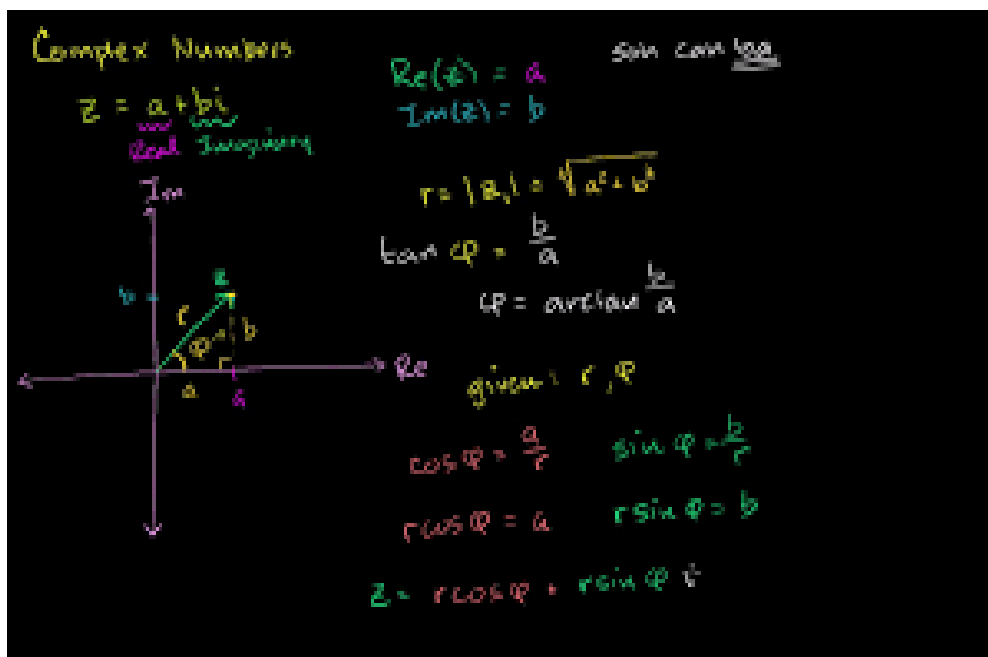 Complex Numbers
z = a + bi
Real Imaginary
Re(z) = a
Im(z) = b
r = |z| = √a² + b²
tan φ = b/a
φ = arctan b/a
Im
b
z
r
φ
b
a
a
Re
given: r, φ
cos φ = a/r
sin φ = b/r
r cos φ = a
r sin φ = b
z = r cos φ + r sin φ i